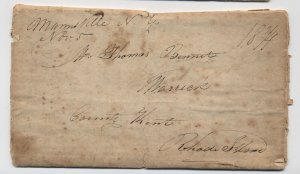 Mannsville N Y
Nov 5
18 3/4
Mr Thomas Bennet
Warrick
County Kent
Rhode Island